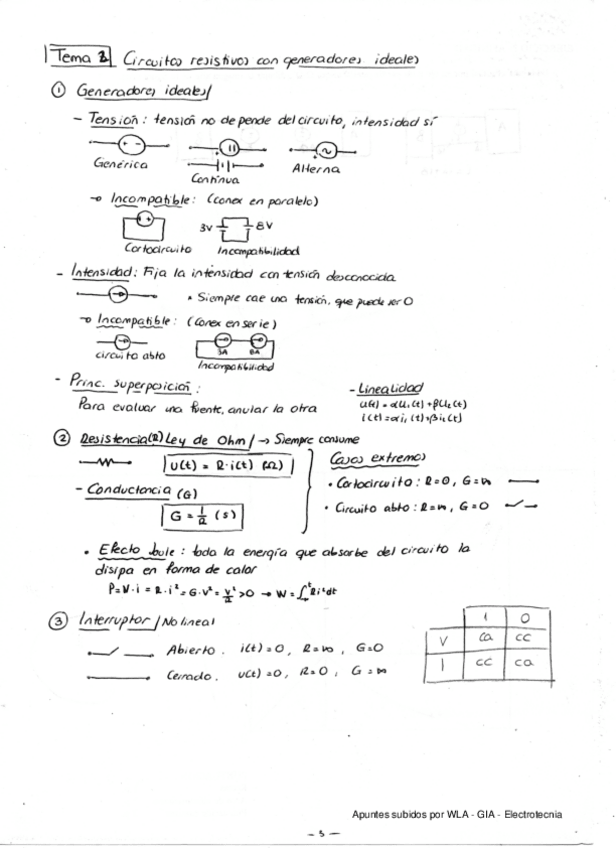 Tema 2 Circuitos resistivos con generadores ideales
① Generadores ideales/
- Tensión : tensión no depende del circuito, intensidad sí
Genérica
Continua
Alterna
→ Incompatible : (conex en paralelo)
3V 8V
Cortocircuito Incompatibilidad
- Intensidad : Fija la intensidad con tensión desconocida
* Siempre cae una tensión, que puede ser 0
→ Incompatible : (conex en serie)
3A 8A
circuito abto Incompatibilidad
- Princ. superposición :
Para evaluar una fuente, anular la otra
- Linealidad
u(t) = αu₁(t) + βu₂(t)
i(t) = αi₁(t) + βi₂(t)
② Resistencia (R) Ley de Ohm / → Siempre consume
u(t) = R · i(t) (Ω)
- Conductancia (G)
G = 1/R (S)
Casos extremos
• Cortocircuito : R=0, G=∞
• Circuito abto : R=∞, G=0
• Efecto Joule : toda la energía que absorbe del circuito la
disipa en forma de calor
P = V · i = R · i² = G · V² = V²/R > 0 → W = ∫ Ri² dt
③ Interruptor / No lineal
Abierto . i(t) = 0, R = ∞, G = 0
Cerrado . u(t) = 0, R = 0, G = ∞
1 0
V ca cc
I cc ca
Apuntes subidos por WLA - GIA - Electrotecnia